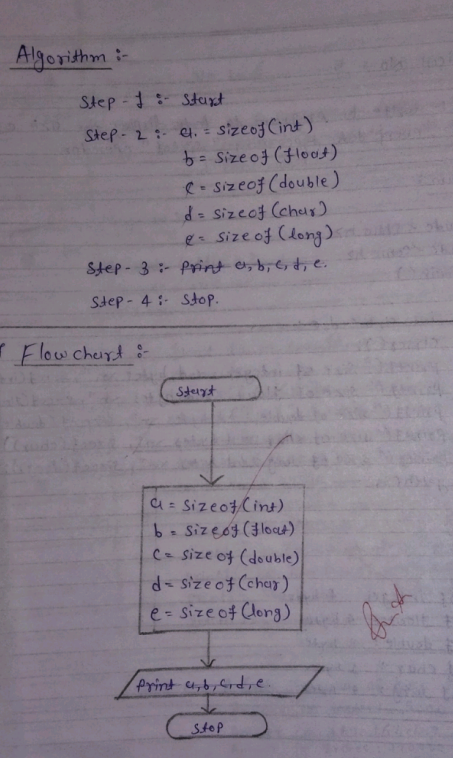 Algorithm :-
Step - 1 :- Start
Step - 2 :- a. = sizeof(int)
b = sizeof (float)
c = sizeof (double)
d = sizeof (char)
e = sizeof (long)
Step - 3 :- Print a, b, c, d, e.
Step - 4 :- Stop.
Flow chart :-
Start
a = sizeof (int)
b = sizeof (float)
c = size of (double)
d = sizeof (char)
e = size of (long)
Print a, b, c, d, e.
Stop